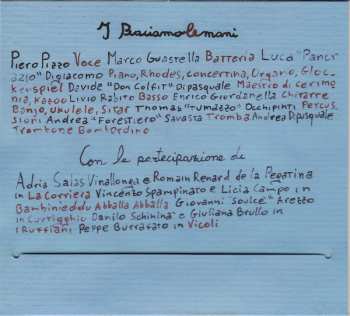 I Baciamolemani
Piero Pizzo Voce Marco Guastella Batteria Luca "Pancr
azio" Digiacomo Piano, Rhodes, concertina, Organo, Gloc_
kenspiel Davide "Don Colfit" Dipasquale Maestro di cerimo
nia, Kazoo Livio Rabito Basso Enrico Giordanella Chitarre
Banjo, Ukulele, Sitar Thomas "Tumazzo" Occhipinti Percus_
sioni Andrea "Forestiero" Savasta Tromba Andrea Dipasquale
Trombone Bombardino
Con la partecipazione di
Adria Salas Vinallonga e Romain Renard de La Pegatina
in La Corriera Vincenzo Spampinato e Licia Campo in
Bambinieddu Abballa Abballa Giovanni "Soulce" Arezzo
in Curtigghiu Danilo Schininà e Giuliana Brullo in
I Ruffiani Peppe Burrafato in Vicoli